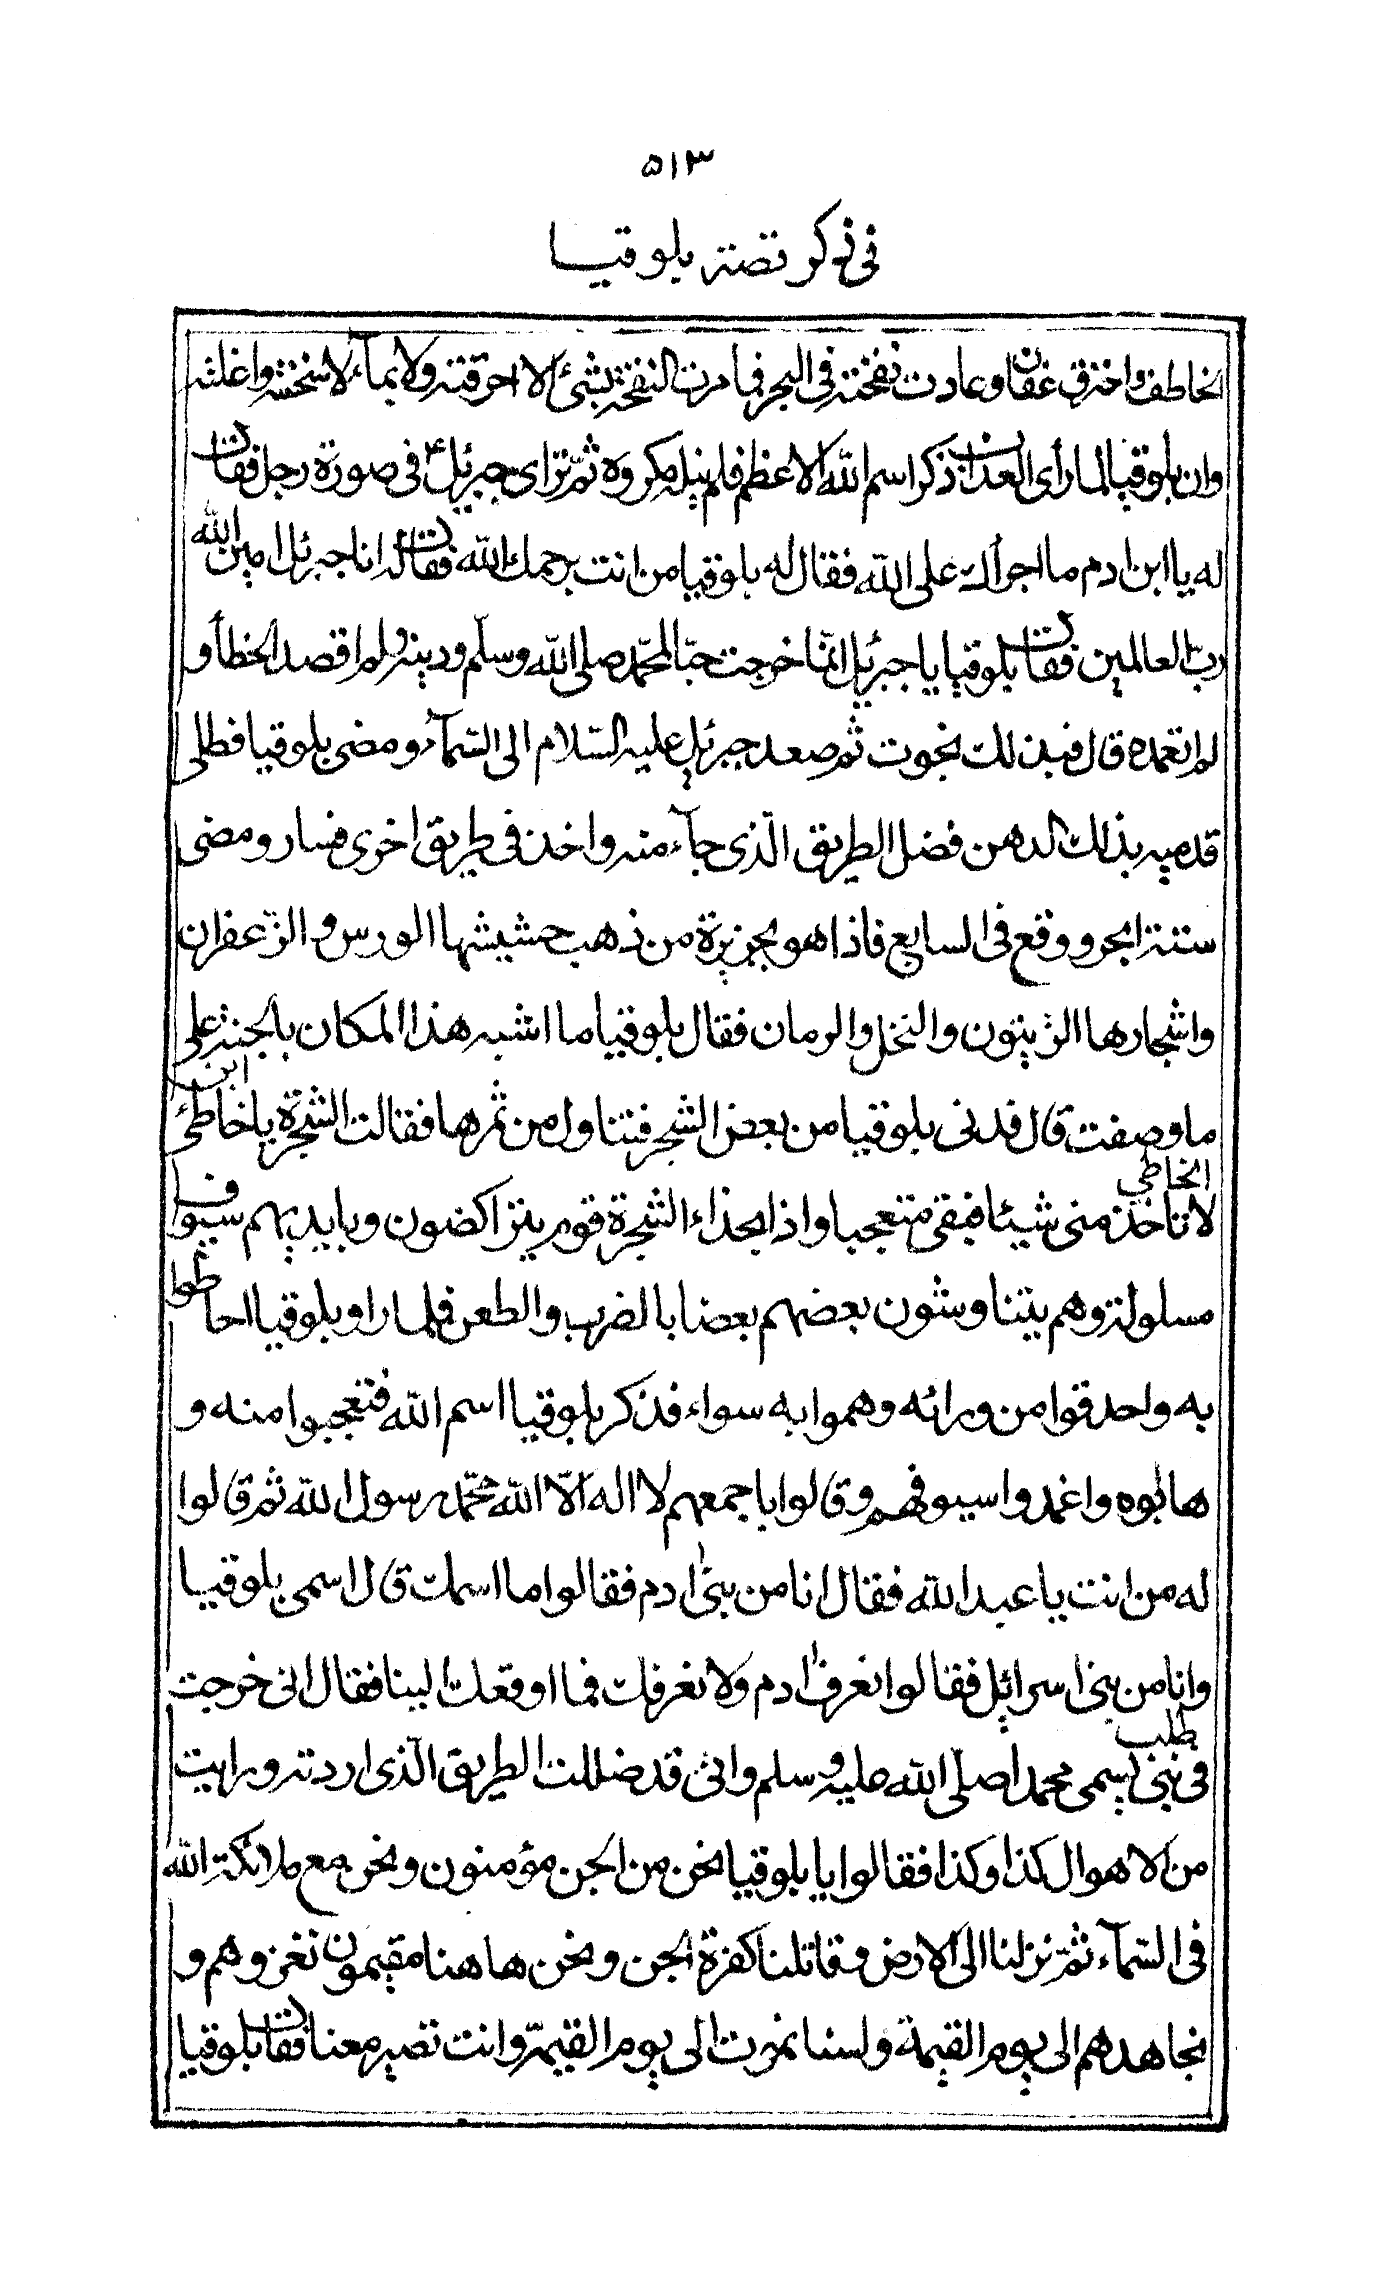 ٥١٣
فى ذكر قصة بلوقيا
الخاطف واحترق عفان وعادت نفخته فى البحر فما مرت النفخة بشئ الا احرقته ولا بمآء الا سخنته واغلته
وان بلوقيا لما رأى العذاب ذكر اسم الله الاعظم فلم ينله مكروه ثم تراى جبرئيل ع فى صورة رجل فقال
له يا ابن ادم ما اجرأك على الله فقال له بلوقيا من انت يرحمك الله فقال له انا جبرئل امين الله
رب العالمين فقال بلوقيا يا جبرئيل انما خرجت حبا لمحمد صلى الله وسلم ودينه ولم اقصد الخطأ و
لم اتعمده قال فبذلك نجوت ثم صعد جبرئيل عليه السلام الى السمآء ومضى بلوقيا فطلى
قدميه بذلك الدهن فضل الطريق الذى جآء منه واخذ فى طريق اخرى فسار ومضى
ستة ابحر ووقع فى السابع فاذا هو بجزيرة من ذهب حشيشها الورس والزعفران
واشجارها الزيتون والنخل والرمان فقال بلوقيا ما اشبه هذا المكان بالجنة على
ما وصفت قال فدنى بلوقيا من بعض الشجر فتناول من ثمرها فقالت الشجرة يا خاطئ ابن
الخاطى لا تاخذ منى شيئا فبقى متعجبا واذا بحذاء الشجرة قوم يتراكضون وبايديهم سيوف
مسلولة وهم يتناوشون بعضهم بعضا بالضرب والطعن فلما راو بلوقيا احاطوا
به واحدقوا من ورائه وهموا به سواء فذكر بلوقيا اسم الله فتعجبوا منه و
هابوه واغمدوا سيوفهم وقالوا باجمعهم لا اله الا الله محمد رسول الله ثم قالوا
له من انت يا عبد الله فقال انا من بنى ادم فقالوا ما اسمك قال اسمى بلوقيا
وانا من بنى اسرائيل فقالوا نعرف ادم ولا نعرفك فما اوقعك الينا فقال انى خرجت
فى طلب نبى يسمى محمدا صلى الله عليه وسلم وانى قد ضللت الطريق الذى اردته ورايت
من الاهوال كذا وكذا فقالوا يا بلوقيا نحن من الجن مؤمنون ونحن مع ملائكة الله
فى السمآء ثم نزلنا الى الارض وقاتلنا كفرة الجن ونحن هاهنا مقيمون نغزوهم و
نجاهدهم الى يوم القيمة ولسنا نموت الى يوم القيمة وانت تصير معنا فقال بلوقيا